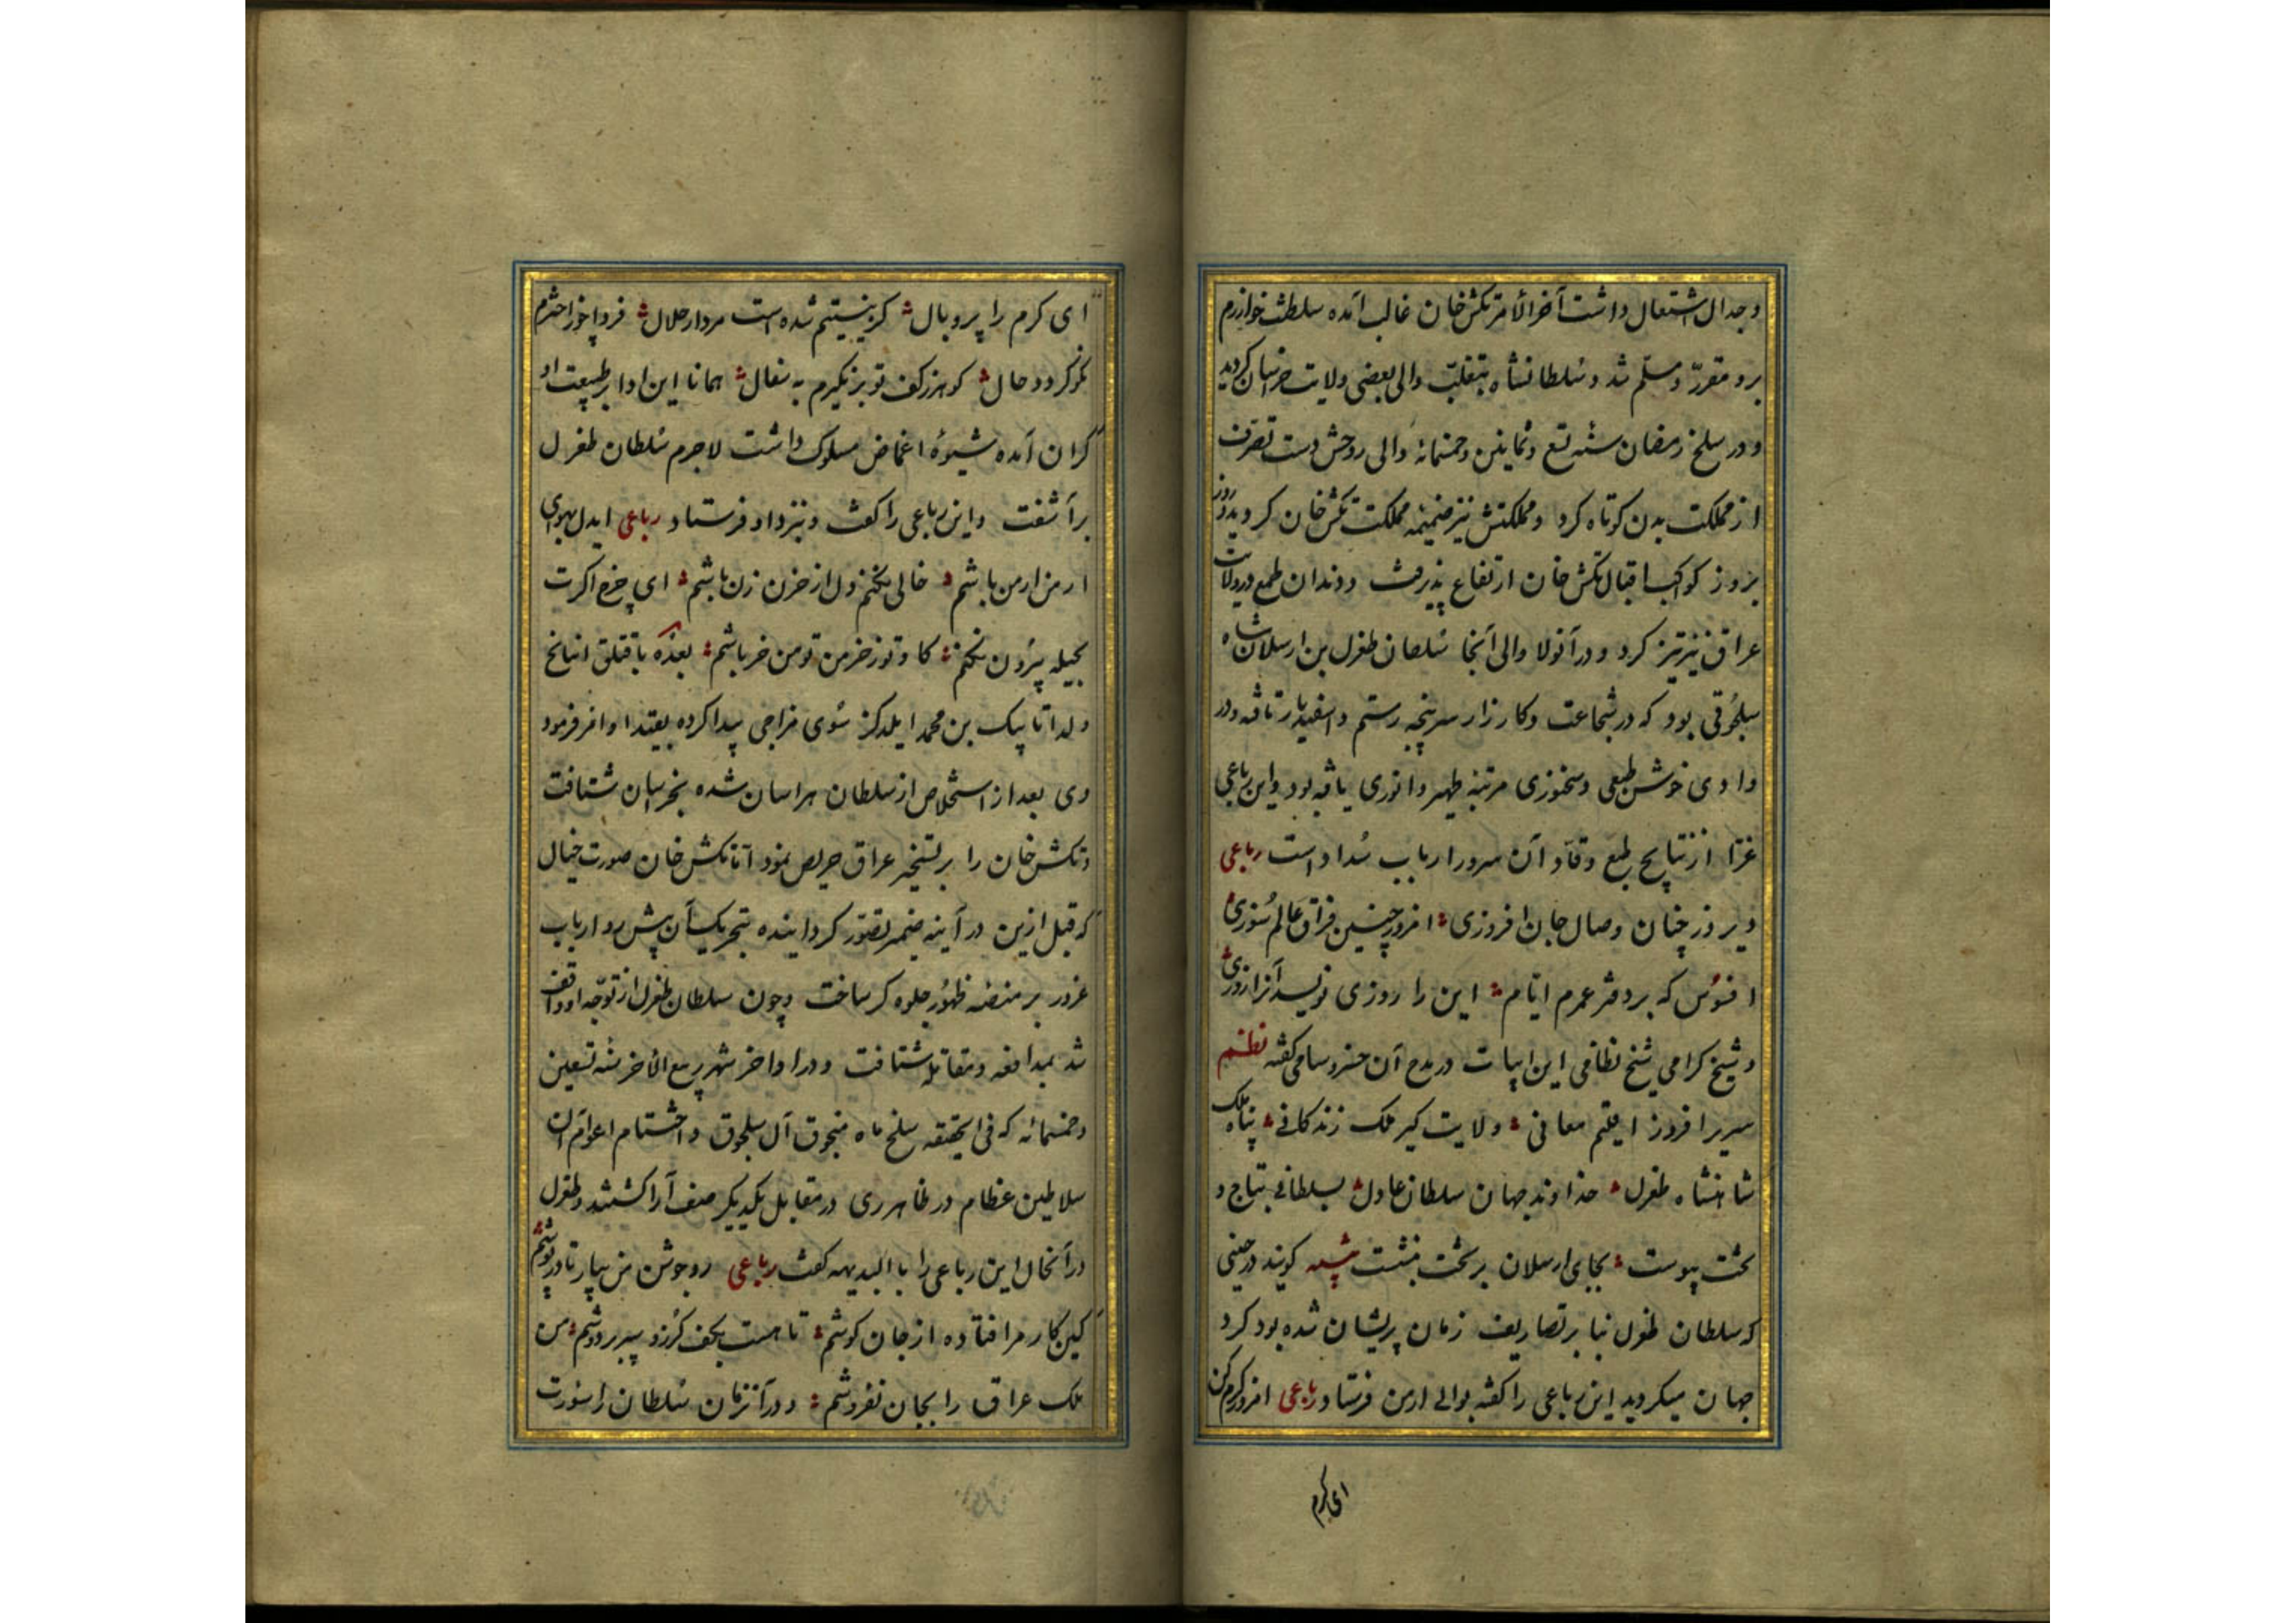 وجدال اشتعال داشت آخرالامر تکش خان غالب آمده سلطنت خوارزم
برو مقرر و مسلم شد و سلطانشاه بتغلب والی بعضی ولایت خراسان کردید
و در سلخ رمضان سنه تسع و ثمانین وخمسمائه والی روحش دست تصرف
از مملکت بدن کوتاه کرد و مملکتش نیز ضمیمه مملکت تکش خان کردید و روز
بروز کوکب اقبال تکش خان ارتفاع پذیرفت و دندان طمع در ولایت
عراق نیز تیز کرد و در آنولا والی آنجا سلطان طغرل بن ارسلان شاه
سلجوقی بود که در شجاعت و کارزار سرپنجه رستم و اسفندیار تافته و در
وادی خوش طبعی و سخنوری مرتبه ظهیر و انوری یافته بود و این رباعی
غرّا از نتایج طبع وقاد آن سرور ارباب سداد است رباعی
دیروز چنان وصال جان افروزی امروز چنین فراق عالم سوزی
افسوس که بر دفتر عمرم ایام این را روزی نویسد آنرا روزی
و شیخ کرامی شیخ نظامی این ابیات در مدح آن خسرو سامی کفته نظم
سریر افروز اقلیم معانی ولایت کیر ملک زندکانی پناه ملک
شاهنشاه طغرل خداوند جهان سلطان عادل بسلطانی بتاج و
تخت پیوست بجای ارسلان بر تخت بنشست کویند در حینی
که سلطان طغرل بنا بر تصاریف زمان پریشان شده بود کرد
جهان میکردید این رباعی را کفته بوالی ارمن فرستاد رباعی امروز کرم کن
ای کرم
ای کرم را پر و بال کز نیستیم شده است مردار حلال فردا چو
نکو کردد حال کوهر ز کف تو بر نکیرم به سفال همانا این ادا بر طبیعت او
کران آمده شیوهٔ اغماض مسلوک داشت لاجرم سلطان طغرل
برآشفت و این رباعی را کفت و بنزد او فرستاد رباعی ایدل بهوای
ارمن ار من باشم خالی نکنم دل از حزن زن باشم ای چرخ اکرت
بحیله بیرون نکنم کاو تو ز خرمن تو من خر باشم بعده با قتلق اینانج
ولد اتابیک بن محمد ایلدکز سوی مزاجی پیدا کرده بقید او امر فرمود
وی بعد از استخلاص از سلطان هراسان شده بخراسان شتافت
و تکش خان را بر تسخیر عراق حریص نمود آنا تکش خان صورت خیال
که قبل ازین در آینه ضمیر تصور کردانیده بتحریک آن پیش رو ارباب
غرور بر منصه ظهور جلوه کر ساخت و چون سلطان طغرل از توجه او واقف
شد بمدافعه و مقاتله شتافت و در اواخر شهر ربیع الآخر سنه تسعین
وخمسمائه که فی الحقیقه سلخ ماه منجوق آل سلجوق و اختتام اعوام آن
سلاطین عظام در ظاهر ری در مقابل یکدیکر صف آرا کشتند و طغرل
در آنحال این رباعی را با البدیهه کفت رباعی رو جوشن من بیار تا در پوشم
کین کار مرا فتاده از جان کوشم تا هست بکف کرز و سپر بر دوشم من
ملک عراق را بجان نفروشم و در آنزمان سلطان را سورت